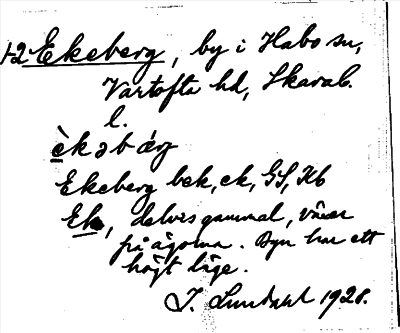 12 Ekeberg, by i Habo sn,
Vartofta hd, Skarab.
l.
èkəbærj
Ekeberg bek, ek, GS, Kb
Ek, delvis gammal, växer
på ägorna. Byn har ett
högt läge.
J. Lundahl 1928.